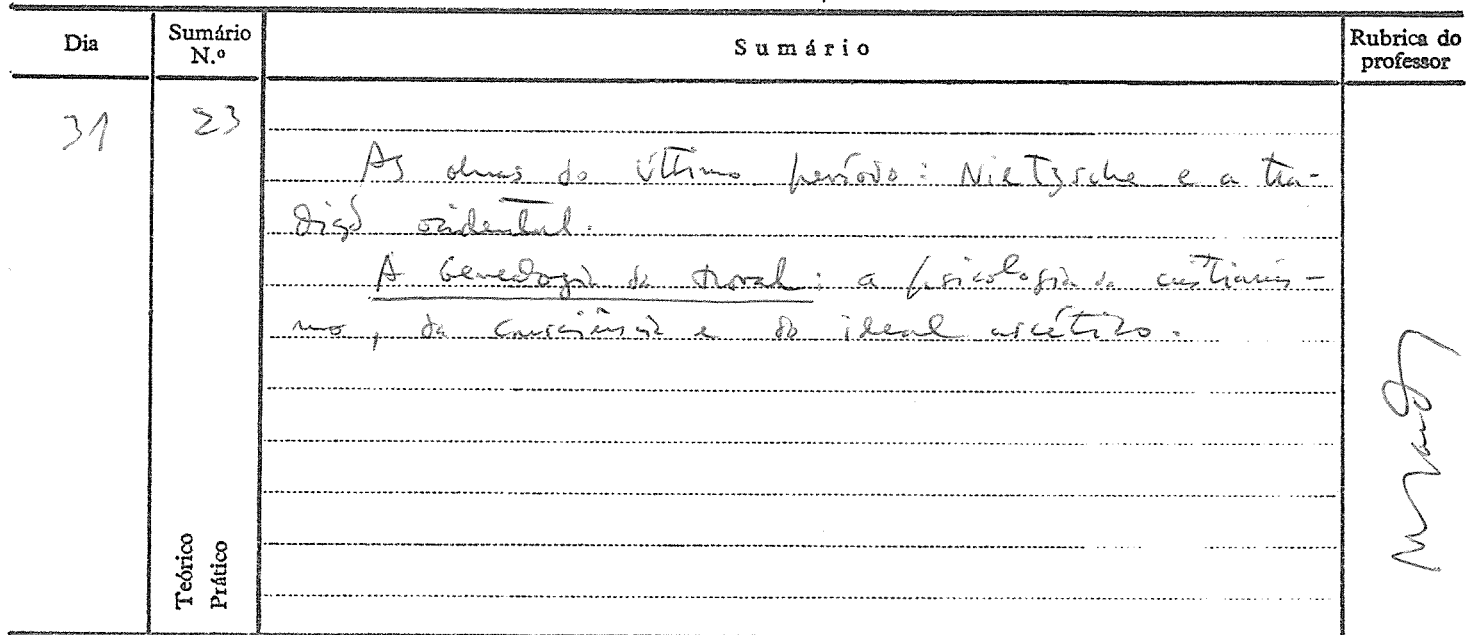 Dia
Sumário N.º
Sumário
Rubrica do professor
31
23
As obras do último período: Nietzsche e a tra-
dição ocidental.
A Genealogia da Moral: a psicologia do cristianis-
mo, da consciência e do ideal ascético.
Teórico
Prático